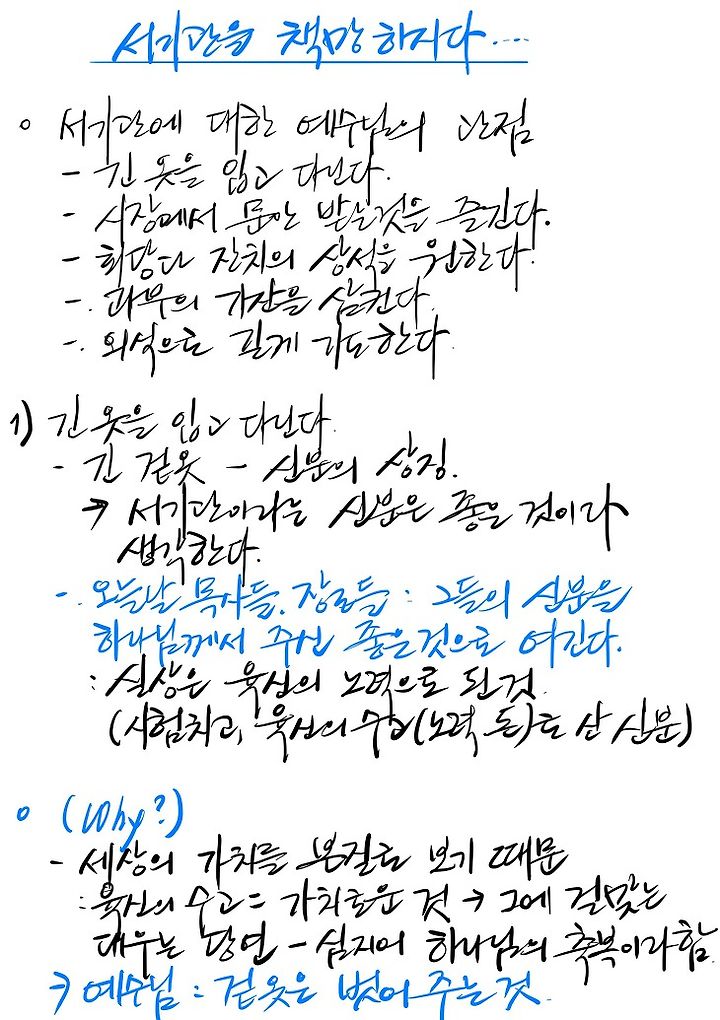 서기관을 책망하시다....
○ 서기관에 대한 예수님의 관점
- 긴 옷을 입고 다닌다.
- 시장에서 문안 받는것을 즐긴다.
- 회당과 잔치의 상석을 원한다.
- 과부의 가산을 삼킨다.
- 외식으로 길게 기도한다.
1) 긴 옷을 입고 다닌다.
- 긴 겉옷 - 신분의 상징.
→ 서기관이라는 신분은 좋은 것이라
생각한다.
- 오늘날 목사들, 장로들 : 그들의 신분을
하나님께서 주신 좋은것으로 여긴다.
: 실상은 육신의 노력으로 된것
(시험치고, 육신의 수고(노력 돈)로 산 신분)
○ (Why?)
- 세상의 가치를 본질로 보기 때문
: 육신의 수고 = 가치로운 것 → 그에 걸맞는
대우는 당연 - 심지어 하나님의 축복이라 함
→ 예수님 : 겉옷은 벗어 주는것.